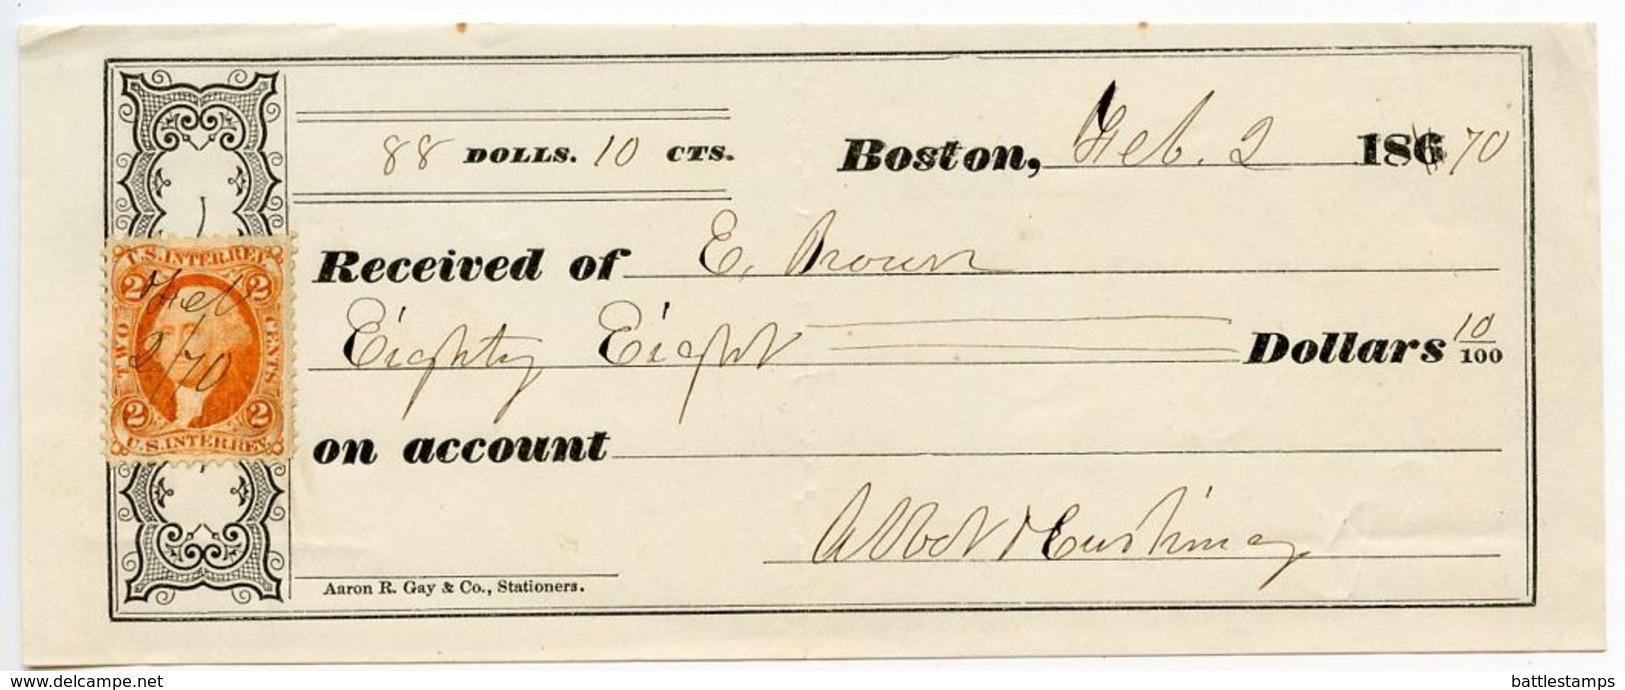 88 DOLLS. 10 CTS.
Boston, Feb. 2 18670
Received of E. Brown
Eighty Eight Dollars 10/100
on account
Aaron R. Gay & Co., Stationers.
U.S. INTER. REV.
2 2
TWO CENTS
Feb
2/70
2 2
U.S. INTER. REV.
www.delcampe.net
battlestamps